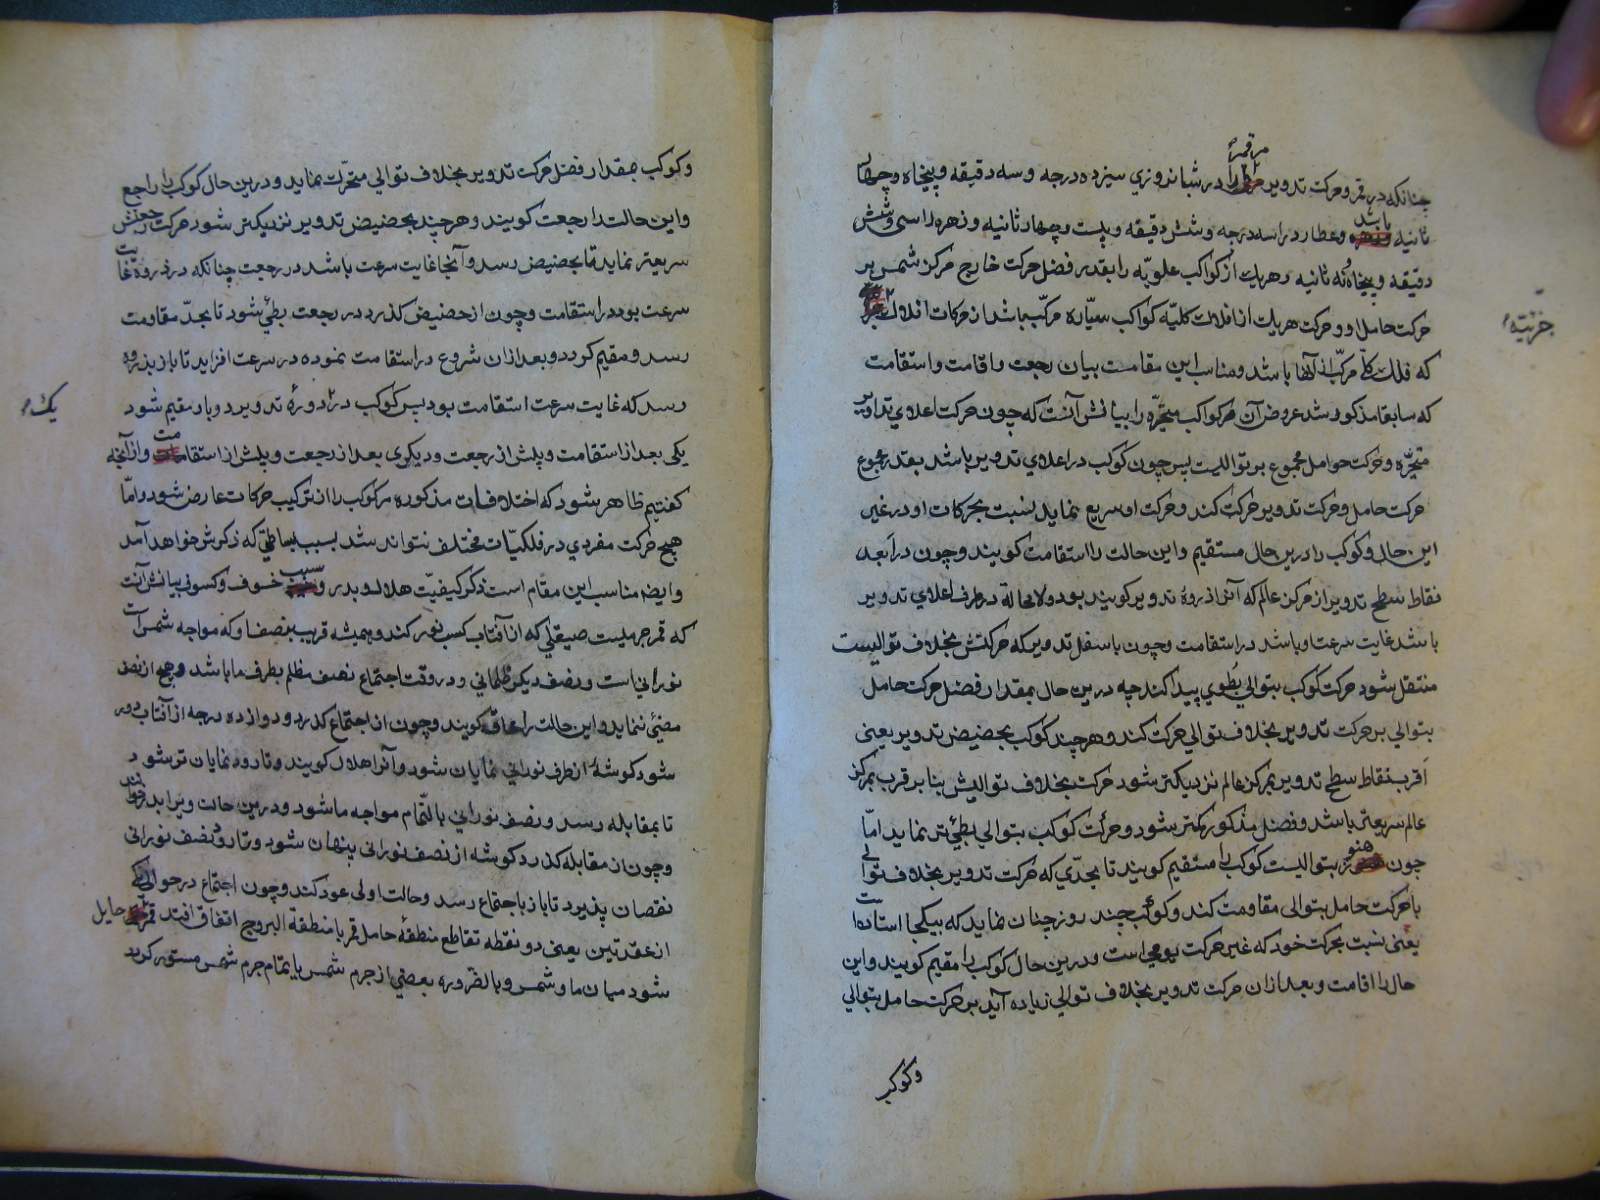 چنانکه در قمر و حرکت تدویر مر قمر را در شبانروزی سیزده درجه و سه دقیقه و پنجاه و چهار
ثانیه باشد و عطارد را سه درجه و شش دقیقه و بیست و چهار ثانیه و زهره را سی و شش
دقیقه و پنجاه نه ثانیه و هر یک از کواکب علویه را بقدر فضل حرکت خارج مرکز شمس بر
حرکت حامل او و حرکت هر یک از افلاک کلیّه کواکب سیّاره مرکّب باشد از حرکات افلاک
جزئیّه
که فلک کلّی مرکّب از آنها باشد و مناسب این مقامست بیان رجعت و اقامت و استقامت
که سابقا مذکور شد عروض آن مر کواکب متحیّره را بیانش آنست که چون حرکت اعلای تداویر
متحیّره و حرکت حوامل مجموع بر توالیست پس چون کوکب در اعلای تدویر باشد بقدر مجموع
حرکت حامل و حرکت تدویر حرکت کند و حرکت او سریع نماید نسبت بحرکات او در غیر
این حال و کوکب را درین حال مستقیم و این حالت را استقامت گویند و چون در ابعد
نقاط سطح تدویر از مرکز عالم که آنرا ذروهٔ تدویر گویند بود و لامحاله در طرف اعلای تدویر
باشد غایت سرعت و باشد در استقامت و چون باسفل تدویر که حرکتش بخلاف توالیست
منتقل شود حرکت کوکب بتوالی بُطوی پیدا کند چه درین حال بمقدار فضل حرکت حامل
بتوالی بر حرکت تدویر بخلاف توالی حرکت کند و هر چند کوکب بحضیض تدویر یعنی
اَقرب نقاط سطح تدویر بمرکز عالم نزدیکتر شود حرکت بخلاف توالیش بنا بر قرب بمرکز
عالم سریعتر باشد و فضل مذکور کمتر شود و حرکت کوکب بتوالی بطیٔ تر نماید امّا
چون هنوز بتوالیست کوکب را مستقیم گویند تا بحدّی که حرکت تدویر بخلاف توالی
با حرکت حامل بتوالی مقاومت کند و کوکب چند روز چنان نماید که بیکجا استاده است
یعنی نسبت بحرکت خود که غیر حرکت یومی است و درین حال کوکب را مقیم گویند و این
حال را اقامت و بعد ازان حرکت تدویر بخلاف توالی زیاده آید بر حرکت حامل بتوالی
و کوکب
و کوکب بمقدار فضل حرکت تدویر بخلاف توالی متحرّک نماید و درین حال کوکب را راجع
و این حالت را رجعت گویند و هر چند بحضیض تدویر نزدیکتر شود حرکت رجعتش
سریعتر نماید تا بحضیض رسد و آنجا غایت سرعت باشد در رجعت چنانکه در ذروه غایت
سرعت بود در استقامت و چون از حضیض گذرد در رجعت بطیٔ شود تا بحدّ مقاومت
رسد و مقیم گردد و بعد ازان شروع در استقامت نموده در سرعت افزاید تا باز بذروه
رسد که غایت سرعت استقامت بود پس کوکب در یک دورهٔ تدویر دو بار مقیم شود
یکی بعد از استقامت و پیش از رجعت و دیگری بعد از رجعت و پیش از استقامت و از آنچه
گفتیم ظاهر شود که اختلافات مذکوره مر کوکب را از ترکیب حرکات عارض شود و امّا
هیچ حرکت مفردی در فلکیّات مختلف نتواند شد بسبب بساطتی که ذکرش خواهد آمد
و ایضا مناسب این مقام است ذکر کیفیّت هلال و بدر و سبب خسوف و کسوف بیانش آنست
که قمر جرمیست صیقلی که از آفتاب کسب نور کند و همیشه قریب بنصف او که مواجه شمس است
نورانی است و نصف دیگر ظلمانی و در وقت اجتماع نصف مظلم بطرف ما باشد و هیچ از نصف
مضیٔ ننماید و این حالت را محاق گویند و چون از اجتماع گذرد و دوازده درجه از آفتاب دور
شود گوشهٔ از طرف نورانی نمایان شود و آنرا هلال گویند و تا رود نمایان تر شود
تا بمقابله رسد و نصف نورانی بالتّمام مواجه ما شود و درین حالت ویرا بدر خوانند
و چون از مقابله گذرد گوشه از نصف نورانی پنهان شود و تا رود نصف نورانی
نقصان پذیرد تا باز باجتماع رسد و حالت اولی عود کند و چون اجتماع در حوالی یکی
از عقدتین یعنی دو نقطه تقاطع منطقهٔ حامل قمر با منطقة البروج اتفاق افتد قمر حایل
شود میان ما و شمس و بالضّروره بعضی از جرم شمس یا بتمام جرم شمس مستور گردد